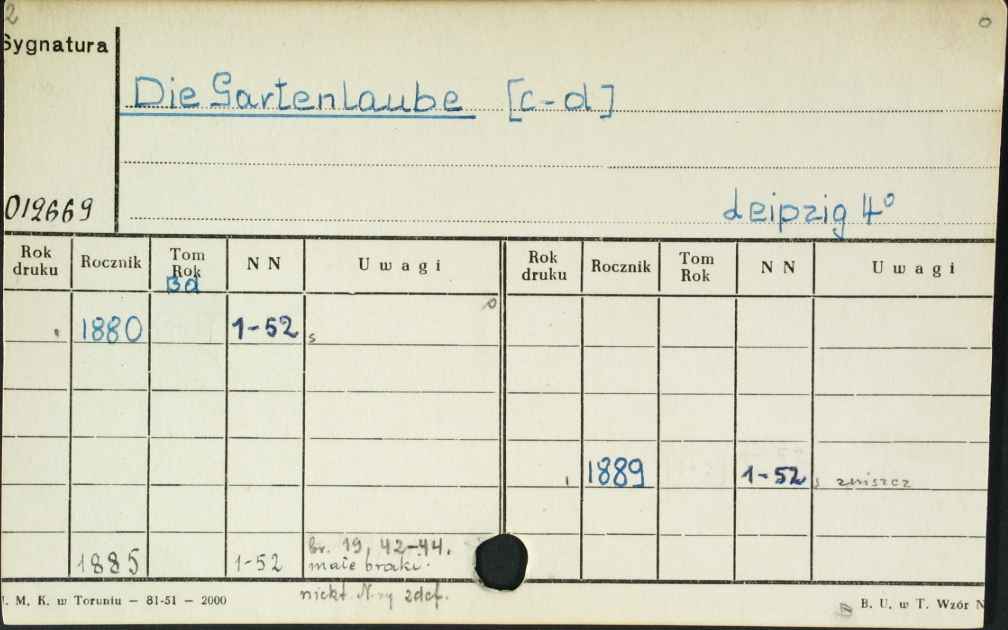 2
Sygnatura
Die Gartenlaube [c-d]
012669
Leipzig 4°
Rok druku Rocznik Tom Rok N N Uwagi Rok druku Rocznik Tom Rok N N Uwagi
Bd
1880 1-52 s
1889 1-52 s zniszcz
1885 1-52 br. 19, 42-44.
małe braki.
niekt. N-ry zdef.
. M. K. w Toruniu — 81-51 — 2000
B. U. w T. Wzór N